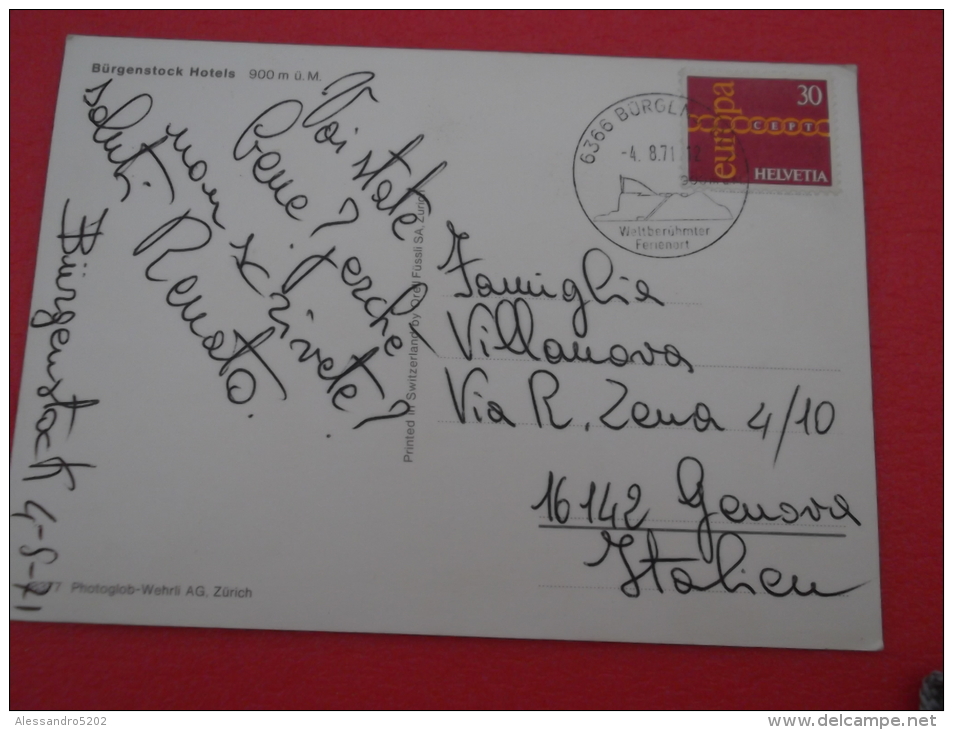 Bürgenstock Hotels 900 m ü. M.
Voi state
bene? Perche
non scrivete?
saluti Renato.
Bürgenstock 4-8-71
Photoglob-Wehrli AG, Zürich
Printed in Switzerland by Orell Füssli SA, Zürich
6366 BÜRGEN
-4. 8.71 12
Weltberühmter
Ferienort
30
europa
CEPT
HELVETIA
Famiglia
Villanova
Via R. Zena 4/10
16142 Genova
Italien
Alessandro5202
www.delcampe.net